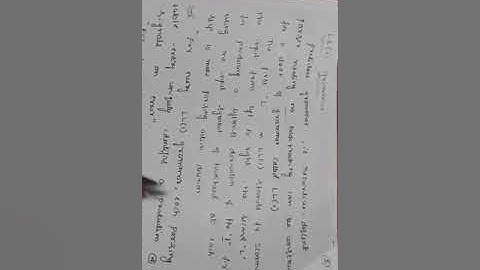 LL(1) Grammars
predictive grammars i.e. recursive-descent
parser needing no backtracking can be constructed
for a class of grammars called LL(1)
The first "L" in LL(1) stands for scanning
the input from left to right the second "L"
for producing a leftmost derivation & the "1" for
using one input symbol of lookahead at each
step to make parsing action decision
"For every LL(1) grammar, each parsing
table entry uniquely identifies a production
signals an "error"